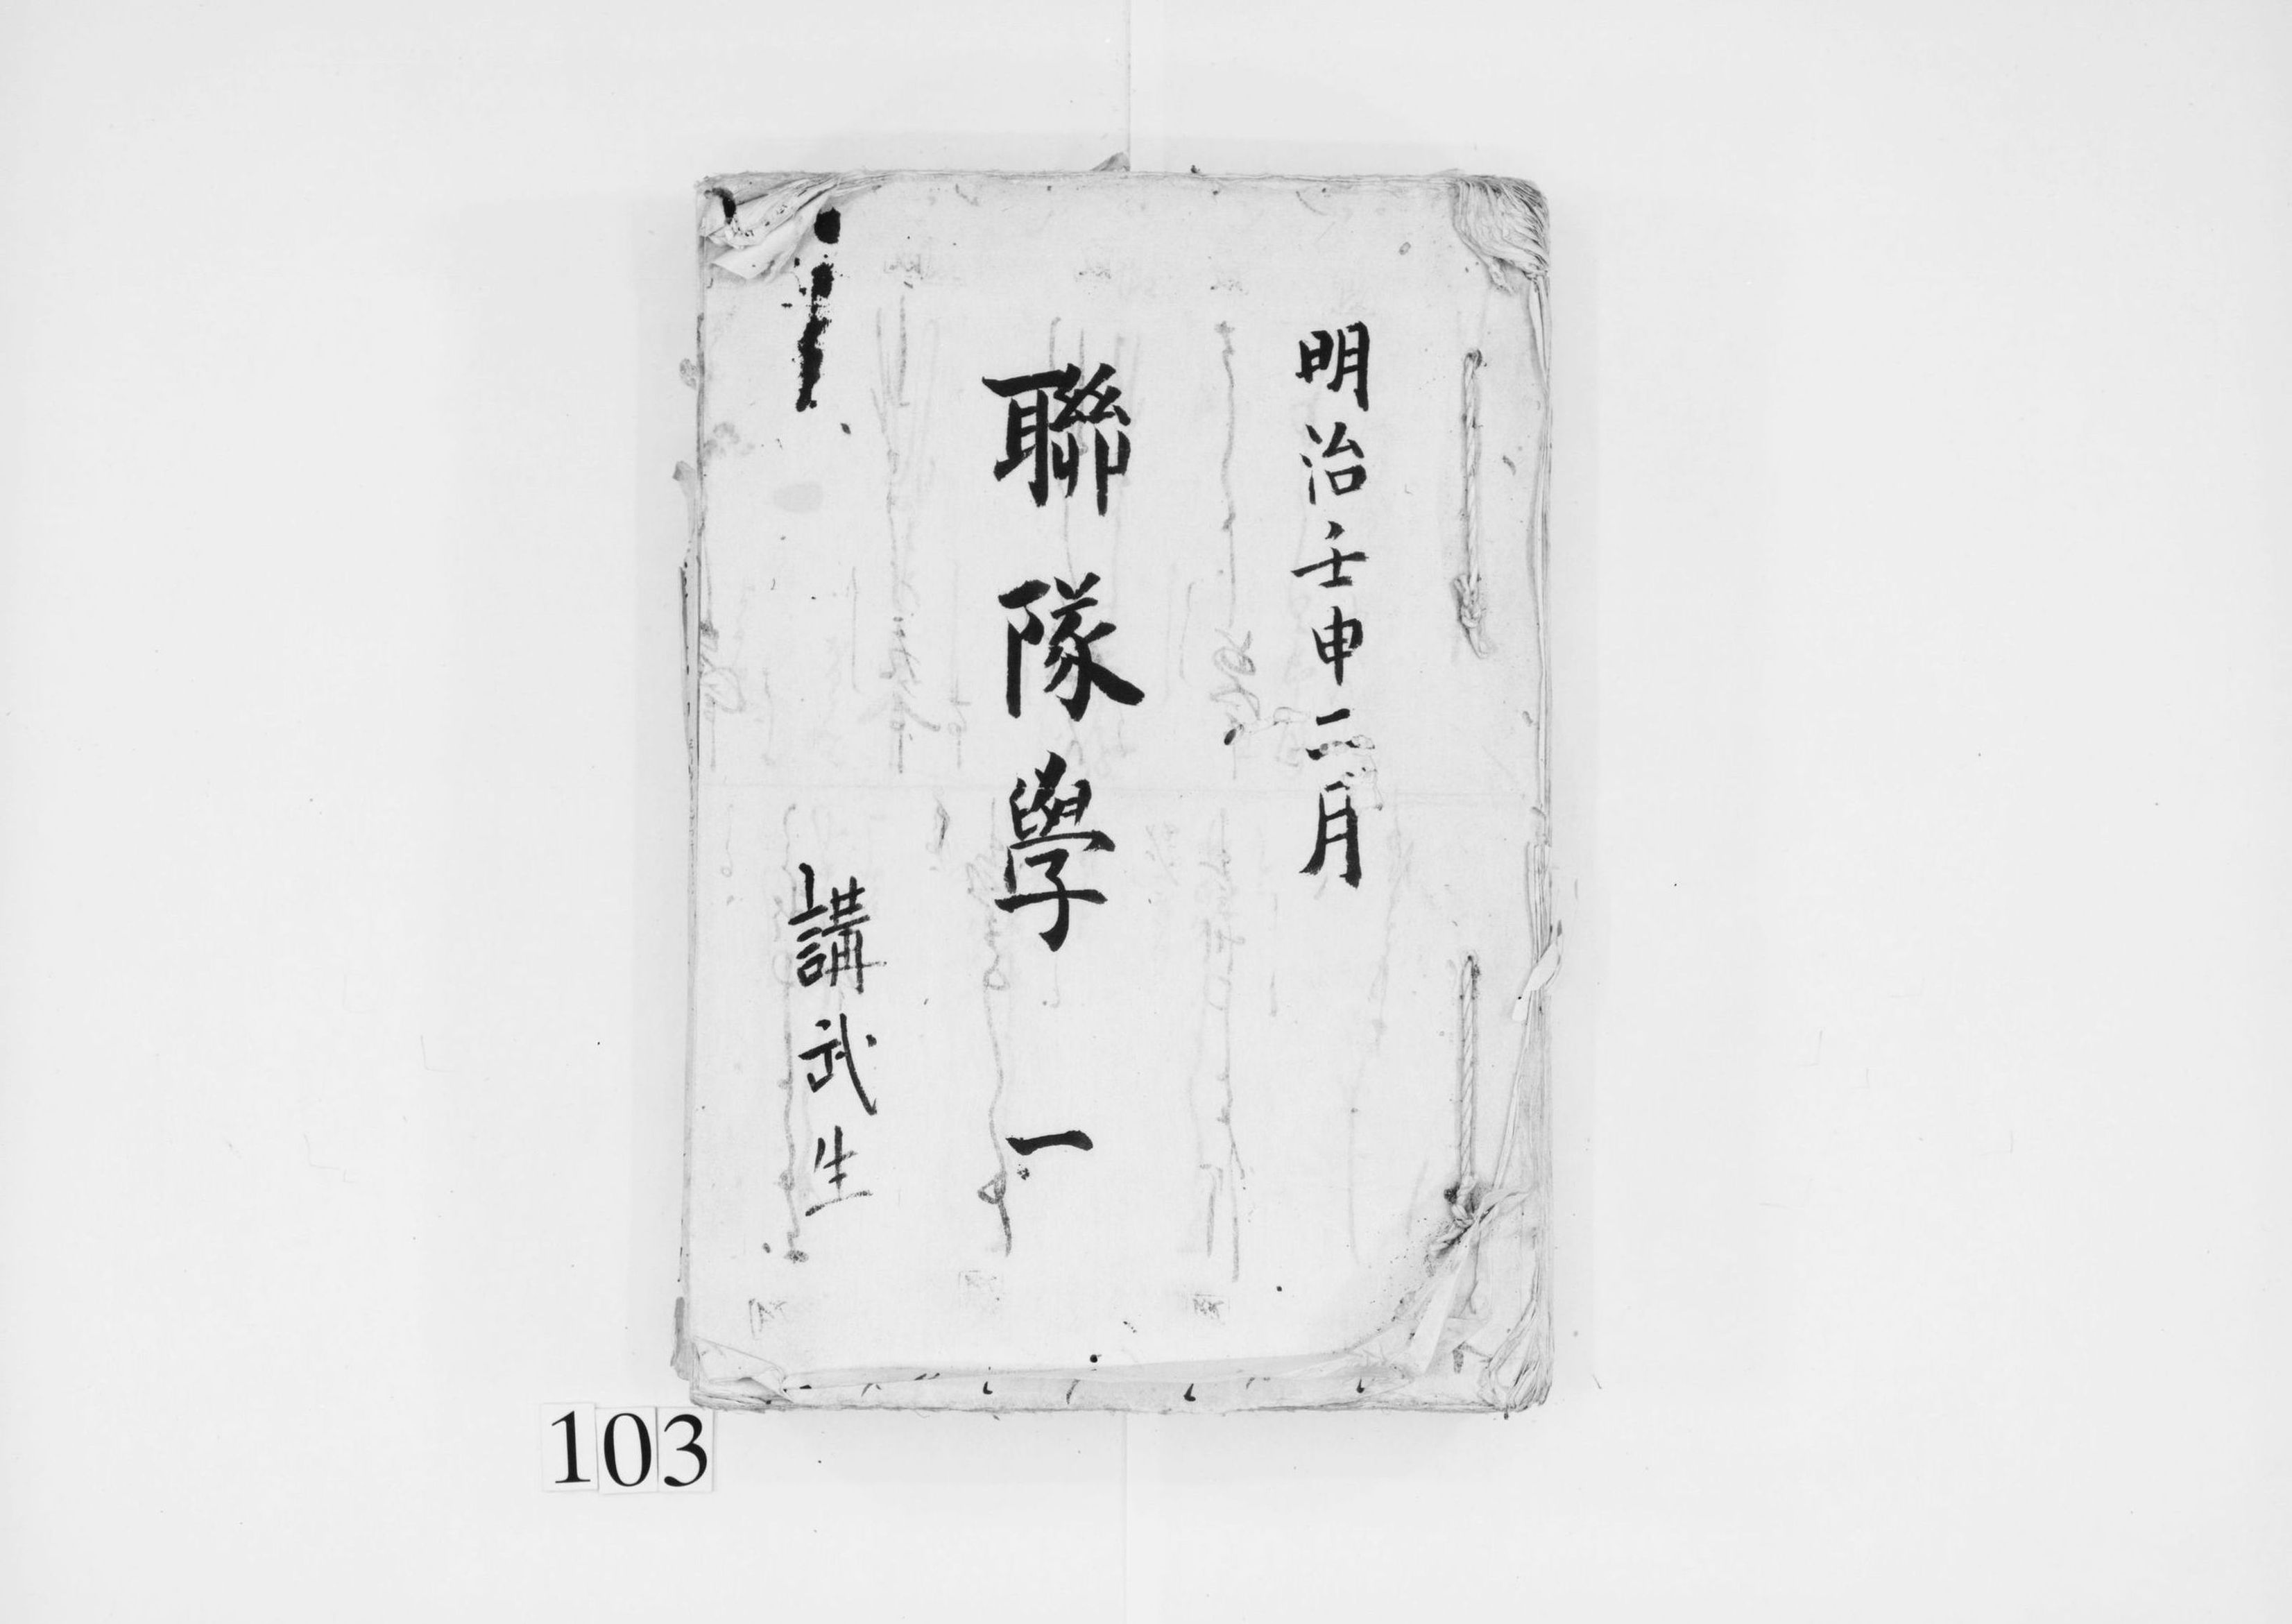 明治壬申二月
聯隊學 一
講武生
103